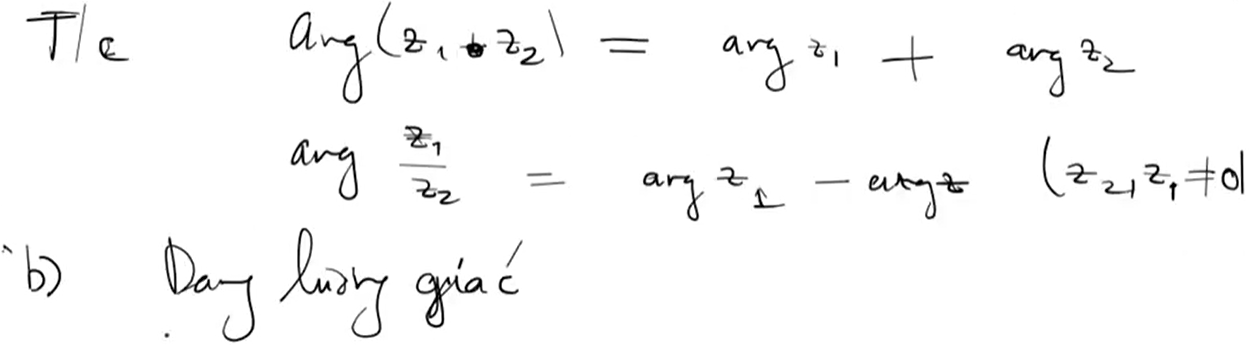 T/c arg(z₁ • z₂) = arg z₁ + arg z₂
arg z₁/z₂ = arg z₁ - arg z (z₂, z₁ ≠ 0)
b) Dạng lượng giác